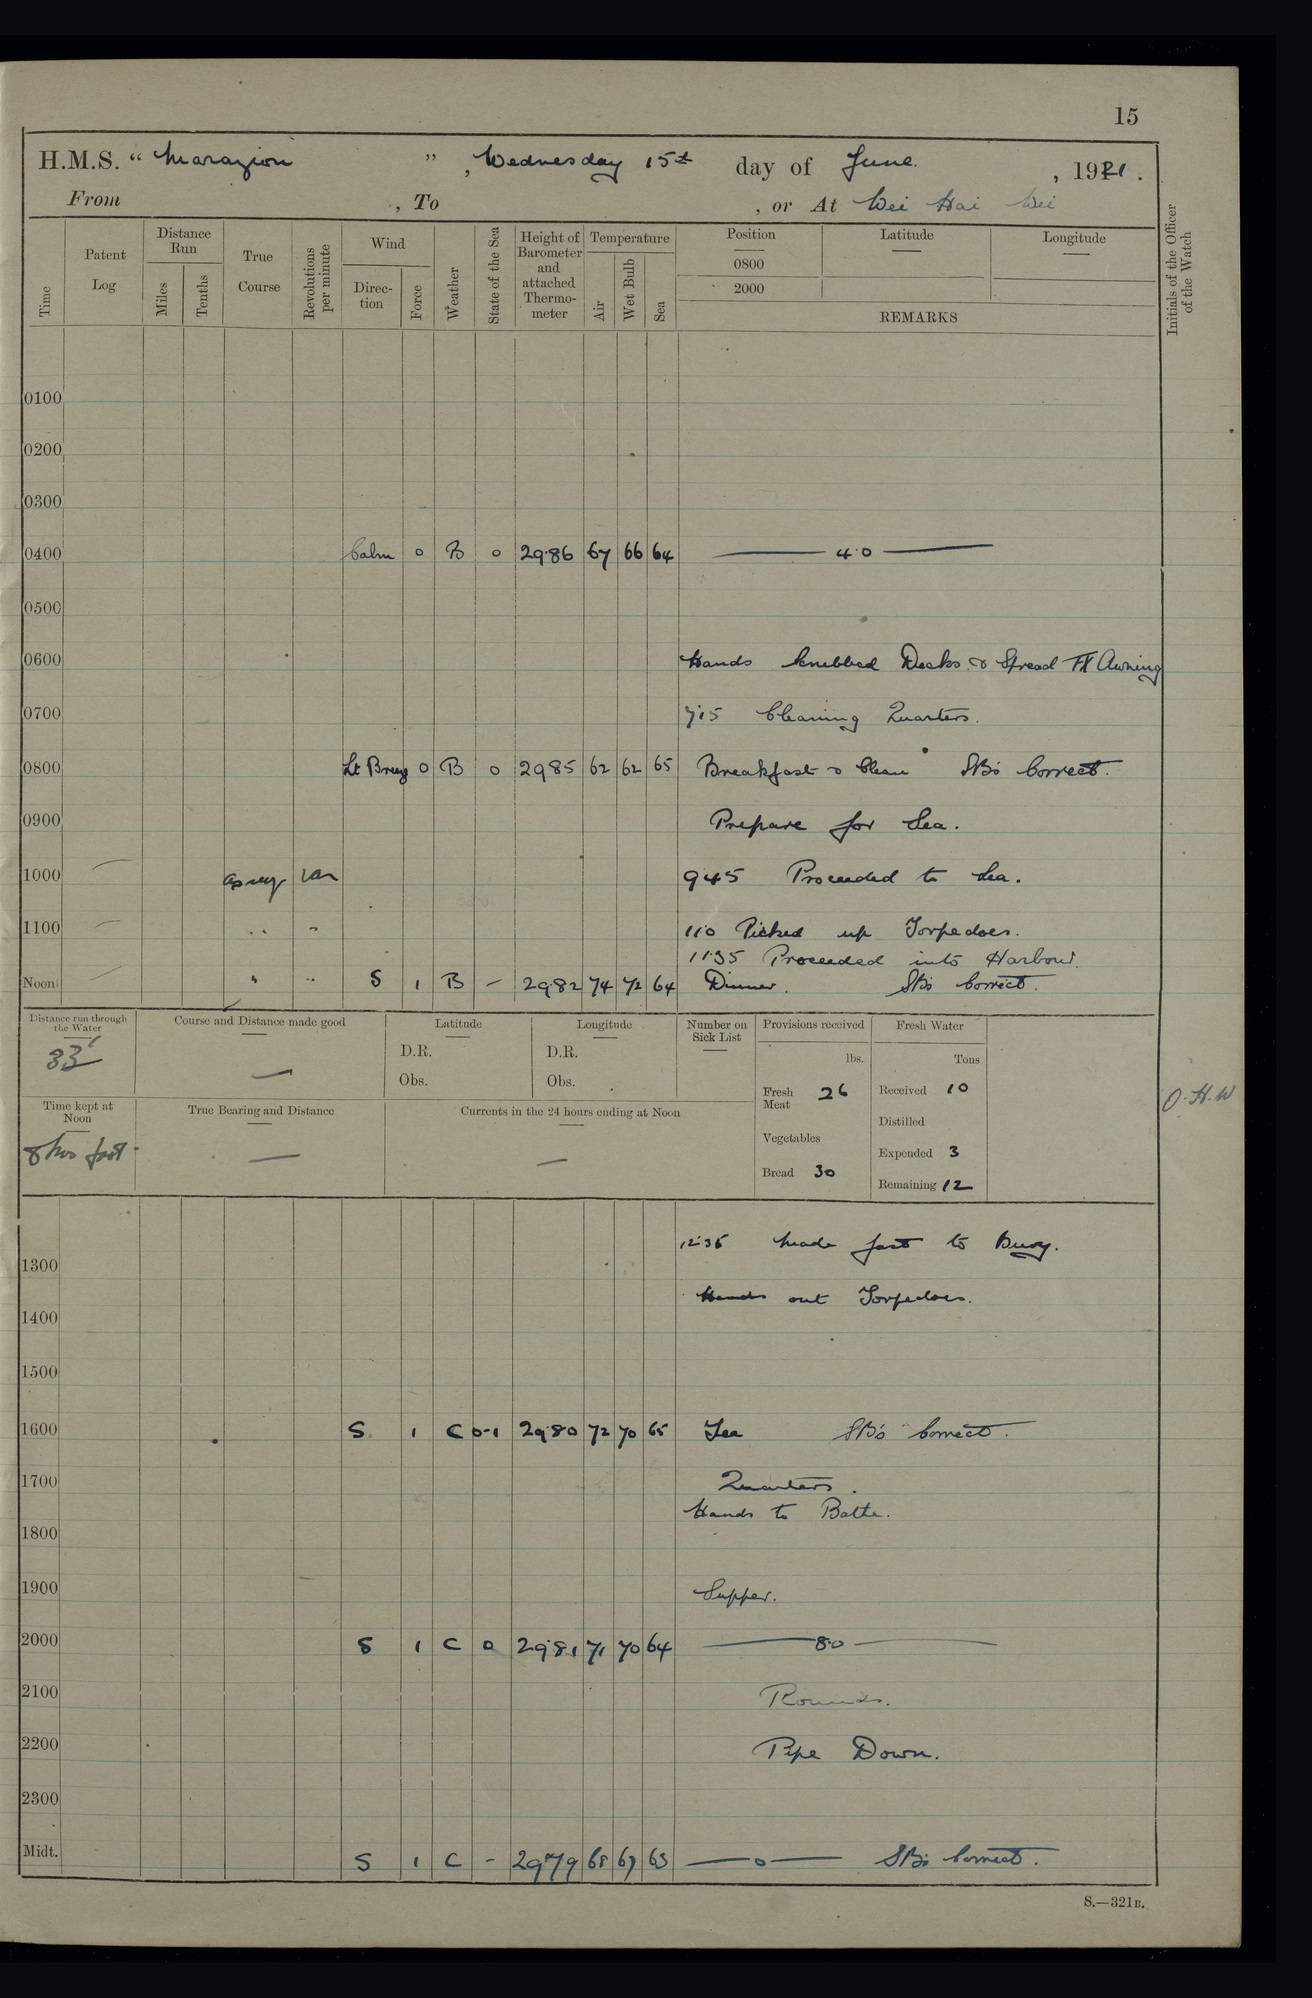 15
H.M.S. " Marazion ", Wednesday 15th day of June, 1921.
From , To , or At Wei Hai Wei
Time Patent Log Distance Run Miles Tenths True Course Revolutions per minute Wind Direction Force Weather State of the Sea Height of Barometer and attached Thermometer Temperature Air Wet Bulb Sea Position 0800 2000 Latitude Longitude REMARKS Initials of the Officer of the Watch
0100
0200
0300
0400 Calm 0 B 0 29.86 67 66 64 — 4.0 —
0500
0600 Hands Scrubbed Decks & Spread Awning
0700 7.15 Cleaning Quarters.
0800 Lt 0 B 0 2985 62 62 65 Breakfast & Clean SBs Correct.
0900 Prepare for Sea.
1000 — as req Var 9.45 Proceeded to Sea.
1100 — " " 11.0 Picked up Torpedoes.
11.35 Proceeded into Harbour.
Noon — " " S 1 B - 29.82 74 72 64 Dinner. SBs Correct.
Distance run through the Water 33' Course and Distance made good — Latitude D.R. Obs. Longitude D.R. Obs. Number on Sick List
Provisions received lbs. Fresh Meat 26 Vegetables Bread 30
Fresh Water Tons Received 10 Distilled Expended 3 Remaining 12
O.H.W
Time kept at Noon 8 hrs fast. True Bearing and Distance — Currents in the 24 hours ending at Noon —
12.35 Made fast to Buoy.
1300
Hands out Torpedoes.
1400
1500
1600 S 1 C 0-1 29.80 72 70 65 Tea SBs Correct.
1700 Quarters.
Hands to Bathe.
1800
1900 Supper.
2000 S 1 C 0 29.81 71 70 64 — 8.0 —
2100 Rounds.
2200 Pipe Down.
2300
Midt. S 1 C - 29.79 68 67 63 — 0 — SBs Correct.
S.—321B.